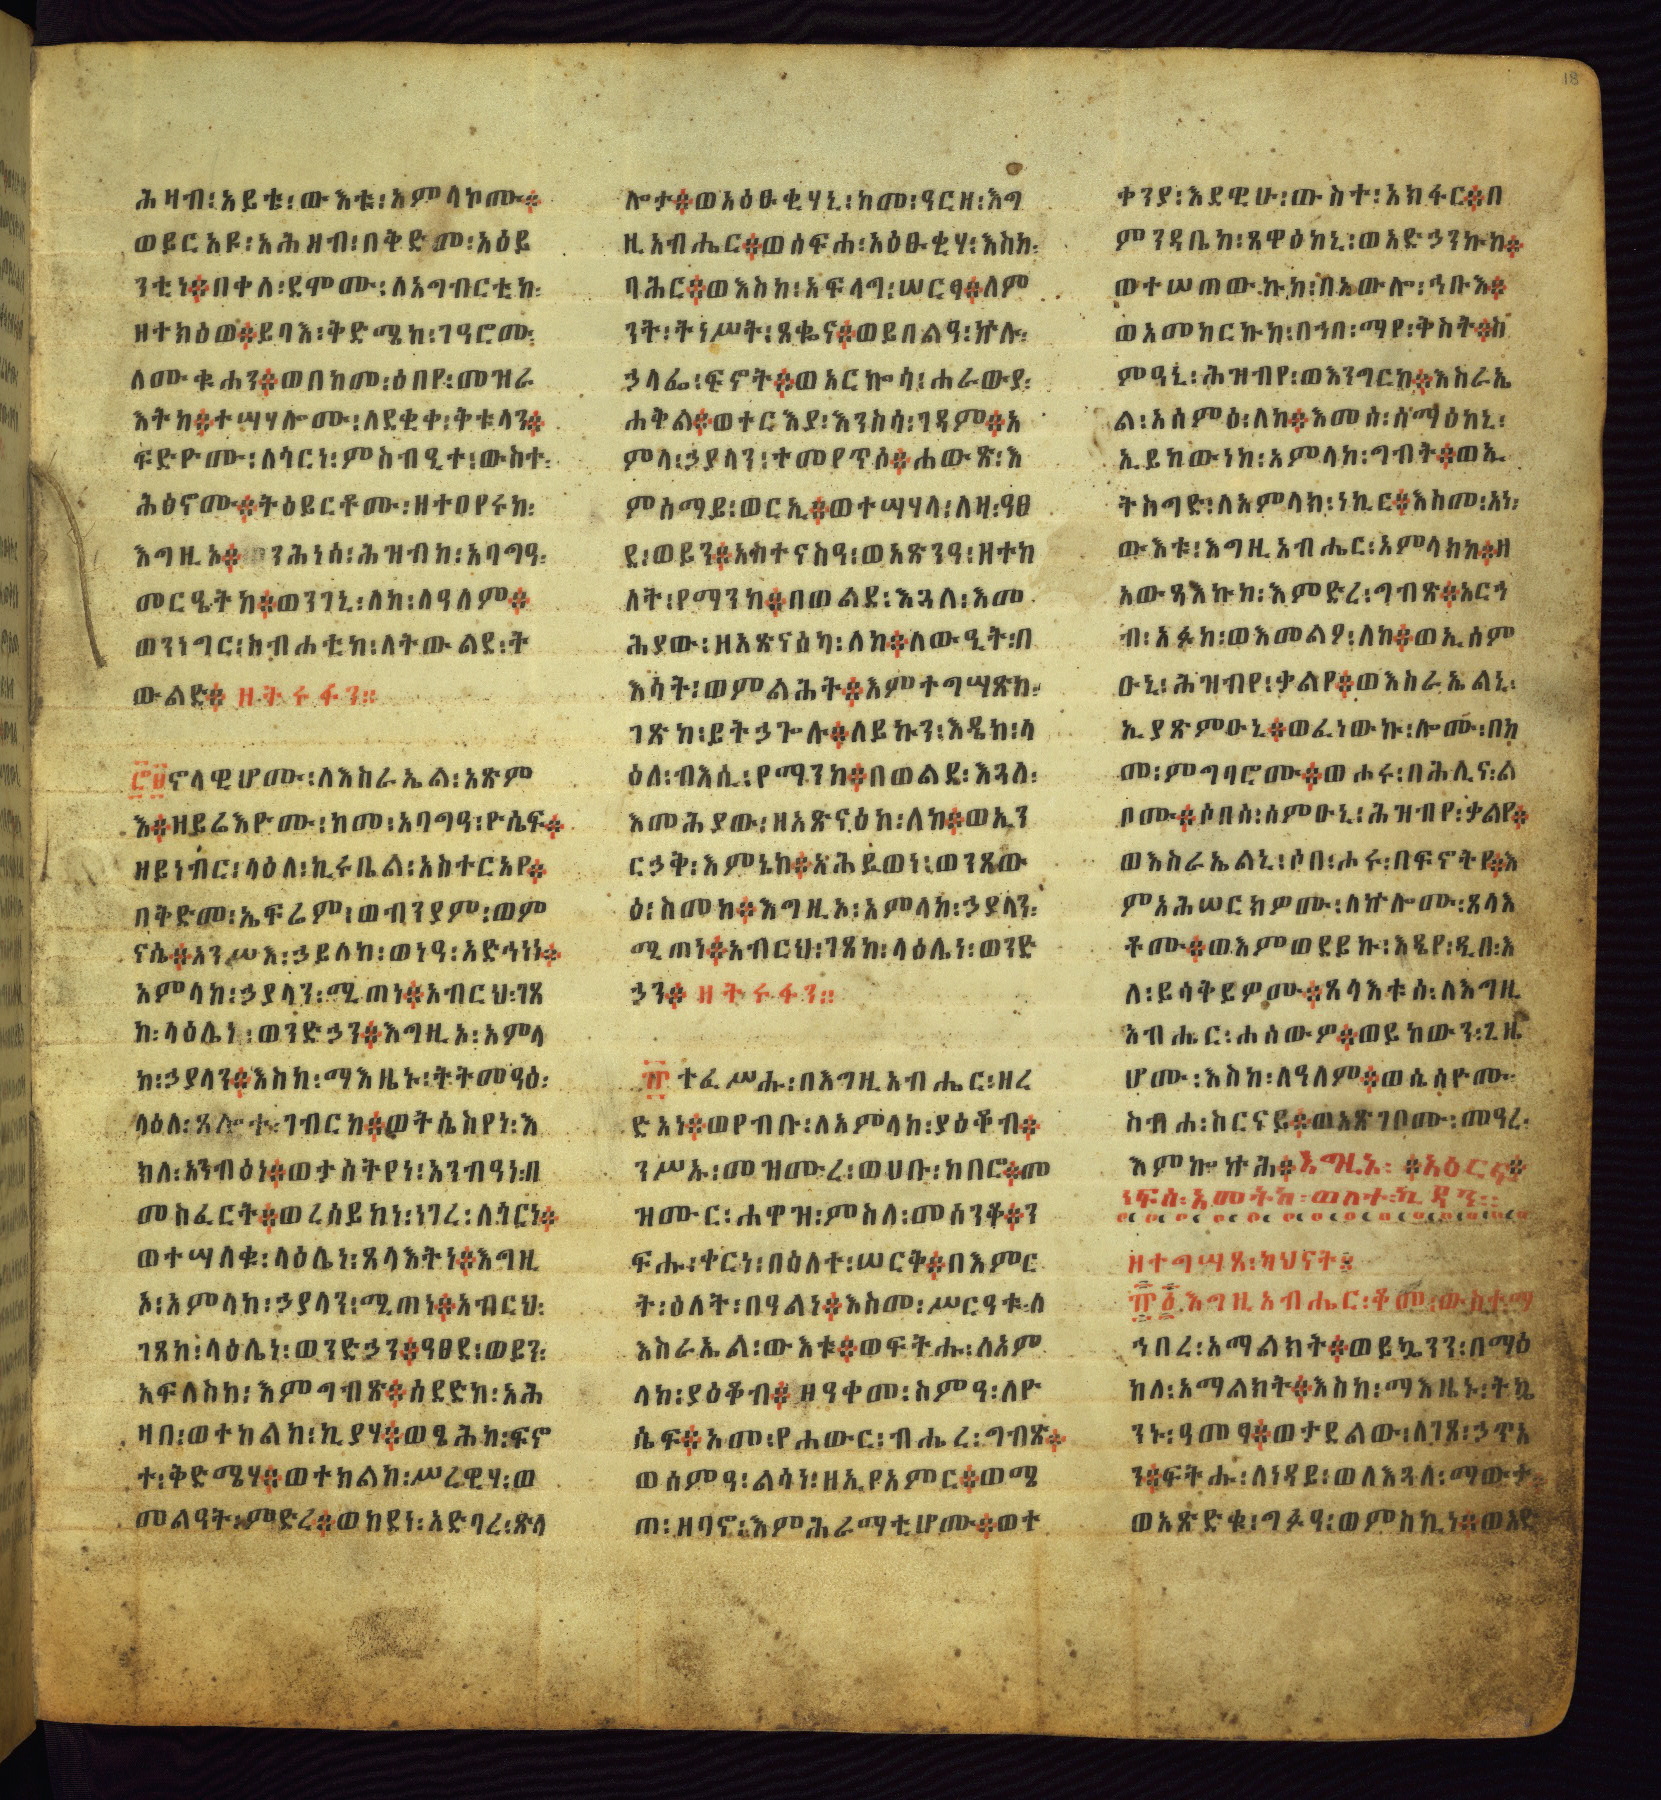 ሕዛብ፡አይቴ፡ውእቱ፡አምላኮሙ፨
ወይርአዩ፡አሕዛብ፡በቅድመ፡አዕይ
ንቲነ፨በቀለ፡ደሞሙ፡ለአግብርቲከ፡
ዘተክዕወ፨ይባእ፡ቅድሜከ፡ገዓሮሙ፡
ለሙቁሐን፨ወበከመ፡ዕበየ፡መዝራ
እትከ፨ተሣሃሎሙ፡ለደቂቀ፡ቅቱላን፨
ፍድዮሙ፡ለጎርነ፡ምስብዒተ፡ውስተ፡
ሕፅኖሙ፨ትዕይርቶሙ፡ዘተዐየሩከ፡
እግዚኦ፨ንሕነሰ፡ሕዝብከ፡አባግዓ፡
መርዔትከ፨ወንገኒ፡ለከ፡ለዓለም፨
ወንነግር፡ስብሐቲከ፡ለትውልደ፡ት
ውልድ፨ዘትሩፋን።
ኖላዊሆሙ፡ለእስራኤል፡አጽም
እ፨ዘይሬእዮሙ፡ከመ፡አባግዓ፡ዮሴፍ፨
ዘይነብር፡ላዕለ፡ኪሩቤል፡አስተርአየ፨
በቅድመ፡ኤፍሬም፡ወብንያም፡ወም
ናሴ፨አንሥእ፡ኃይለከ፡ወነዓ፡አድኅነነ፨
አምላከ፡ኃያላን፡ሚጠነ፨አብርህ፡ገጸ
ከ፡ላዕሌነ፡ወንድኃን፨እግዚኦ፡አምላ
ከ፡ኃያላን፨እስከ፡ማእዜኑ፡ትትመዓዕ፡
ላዕለ፡ጸሎተ፡ገብርከ፨ወትሴስየነ፡እ
ክለ፡አንብዕነ፨ወታሰትየነ፡አንብዓነ፡በ
መስፈርት፨ወረሰይከነ፡ነገረ፡ለጎርነ፨
ወተሣለቁ፡ላዕሌነ፡ጸላእትነ፨እግዚ
ኦ፡አምላከ፡ኃያላን፡ሚጠነ፨አብርህ፡
ገጸከ፡ላዕሌነ፡ወንድኃን፨ዓፀደ፡ወይን፡
አፍለስከ፡እምግብጽ፨ሰደድከ፡አሕ
ዛበ፡ወተከልከ፡ኪያሃ፨ወፄሕከ፡ፍኖ
ተ፡ቅድሜሃ፨ወተከልከ፡ሥረዊሃ፡ወ
መልዓት፡ምድረ፨ወከደነ፡አድባረ፡ጽላ
ሎታ፨ወአዕፁቂሃኒ፡ከመ፡ዓርዘ፡እግ
ዚአብሔር፨ወሰፍሐ፡አዕፁቂሃ፡እስከ፡
ባሕር፨ወእስከ፡አፍላግ፡ሠርፃ፨ለም
ንት፡ትነሥት፡ጸቈና፨ወይበልዓ፡ኵሉ፡
ኃላፌ፡ፍኖት፨ወአርኰሳ፡ሐራውያ፡
ሐቅል፨ወተርእያ፡እንስሳ፡ገዳም፨አ
ምላ፡ኃያላን፡ተመየጥሰ፨ሐውጽ፡እ
ምሰማይ፡ወርኢ፨ወተሣሃላ፡ለዛ፡ዓፀ
ደ፡ወይን፨አስተናስዓ፡ወአጽንዓ፡ዘተከ
ለት፡የማንከ፨በወልደ፡እጓለ፡እመ
ሕያው፡ዘአጽናዕካ፡ለከ፨ለውዒት፡በ
እሳት፡ወምልሕት፨እምተግሣጽከ፡
ገጽከ፡ይትኃጐሉ፨ለይኩን፡እዴከ፡ላ
ዕለ፡ብእሲ፡የማንከ፨በወልደ፡እጓለ፡
እመሕያው፡ዘአጽናዕከ፡ለከ፨ወኢን
ርኃቅ፡እምኔከ፨አሕይወነ፡ወንጼው
ዕ፡ስመከ፨እግዚኦ፡አምላከ፡ኃያላን፡
ሚጠነ፨አብርህ፡ገጸከ፡ላዕሌነ፡ወንድ
ኃን፨ዘትሩፋን።
፹ተፈሥሑ፡በእግዚአብሔር፡ዘረ
ድአነ፨ወየብቡ፡ለአምላከ፡ያዕቆብ፨
ንሥኡ፡መዝሙረ፡ወሀቡ፡ከበሮ፨መ
ዝሙር፡ሐዋዝ፡ምስለ፡መሰንቆ፨ን
ፍሑ፡ቀርነ፡በዕለተ፡ሠርቅ፨በእምር
ት፡ዕለት፡በዓልነ፨እስመ፡ሥርዓቱ፡ለ
እስራኤል፡ውእቱ፨ወፍትሑ፡ለአም
ላከ፡ያዕቆብ፨ዘዓቀመ፡ስምዓ፡ለዮ
ሴፍ፨አመ፡የሐውር፡ብሔረ፡ግብጽ፨
ወሰምዓ፡ልሳነ፡ዘኢየአምር፨ወሜ
ጠ፡ዘባኖ፡እምሕራማቲሆሙ፨ወተ
ቀንያ፡እደዊሁ፡ውስተ፡አክፋር፨በ
ምንዳቤከ፡ጸዋዕከኒ፡ወአድኃንኩከ፨
ወተሠጠውኩከ፡በአውሎ፡ኅቡእ፨
ወአመከርኩከ፡በኀበ፡ማየ፡ቅስት፨ስ
ምዓኒ፡ሕዝብየ፡ወእንግርከ፨እስራኤ
ል፡አሰምዕ፡ለከ፨እመሰ፡ሰማዕከኒ፡
ኢይከውነከ፡አምላከ፡ግብት፨ወኢ
ትስግድ፡ለአምላከ፡ነኪር፨እስመ፡አነ፡
ውእቱ፡እግዚአብሔር፡አምላክከ፨ዘ
አውጻእኩከ፡እምድረ፡ግብጽ፨አርኅ
ብ፡አፉከ፡ወእመልዖ፡ለከ፨ወኢሰም
ዑኒ፡ሕዝብየ፡ቃልየ፨ወእስራኤልኒ፡
ኢያጽምዑኒ፨ወፈነውኩ፡ሎሙ፡በከ
መ፡ምግባሮሙ፨ወሐሩ፡በሕሊና፡ል
ቦሙ፨ሶበሰ፡ሰምዑኒ፡ሕዝብየ፡ቃልየ፨
ወእስራኤልኒ፡ሶበ፡ሖሩ፡በፍኖትየ፨እ
ምአሕሠርክዎሙ፡ለኵሎሙ፡ጸላእ
ቶሙ፨ወእምወደይኩ፡እዴየ፡ዲበ፡እ
ለ፡ይሳቅይዎሙ፨ጸላእቱሰ፡ለእግዚ
አብሔር፡ሐሰውዎ፨ወይከውን፡ጊዜ
ሆሙ፡እስከ፡ለዓለም፨ወሴሰዮሙ፡
ስብሐ፡ስርናይ፨ወአጽገቦሙ፡መዓረ፡
እምኰኵሕ፨
ዘተግሣጸ፡ካህናት፨
፹፩እግዚአብሔር፡ቆመ፡ውስተ፡ማ
ኅበረ፡አማልክት፨ወይኴንን፡በማዕ
ከለ፡አማልክት፨እስከ፡ማእዜኑ፡ትኴ
ንኑ፡ዓመፃ፨ወታደልው፡ለገጸ፡ኃጥአ
ን፨ፍትሑ፡ለነዳይ፡ወለእጓለ፡ማውታ፨
ወአጽድቁ፡ግፉዓ፡ወምስኪነ፨ወአድ